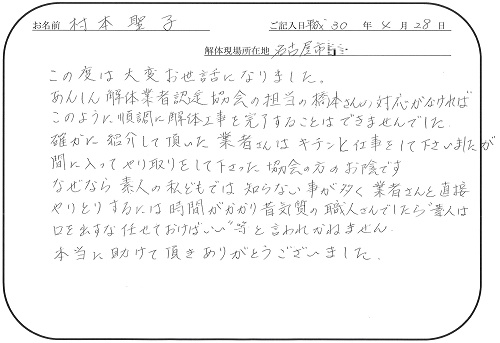 お名前 村本聖子 ご記入日 平成30年4月28日
解体現場所在地 名古屋市
この度は大変お世話になりました。
あんしん解体業者認定協会の担当の橋本さんの対応がなければ
このように順調に解体工事を完了することはできませんでした。
確かに紹介して頂いた業者さんはキチンと仕事をして下さいましたが
間に入ってやり取りをして下さった協会の方のお陰です
なぜなら素人の私どもでは知らない事が多く業者さんと直接
やりとりするには時間がかかり昔気質の職人さんでしたら"素人は
口を出すな任せておけばいい"等と言われかねません。
本当に助けて頂きありがとうございました。